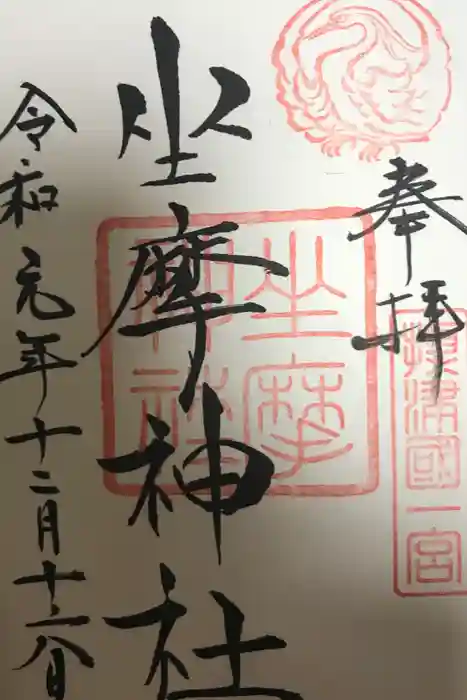 奉拝
摂津國一宮
坐摩神社
坐摩神社
令和元年十二月十六日